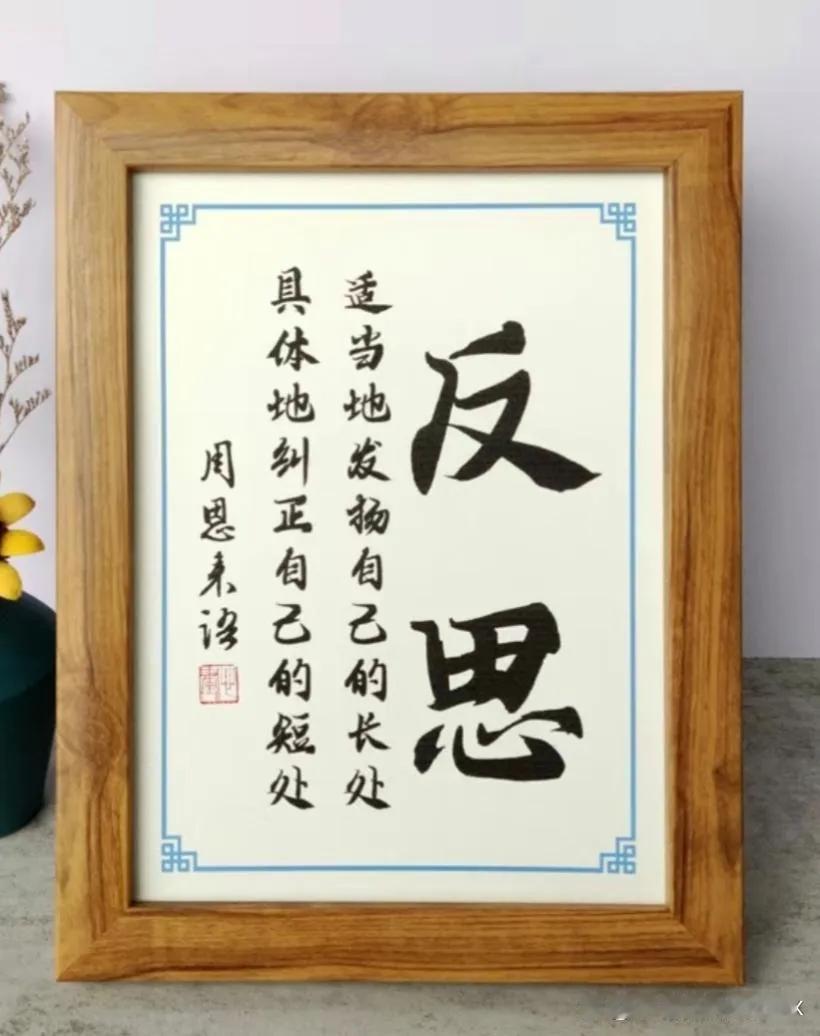 反思
适当地发扬自己的长处
具体地纠正自己的短处
周恩来语